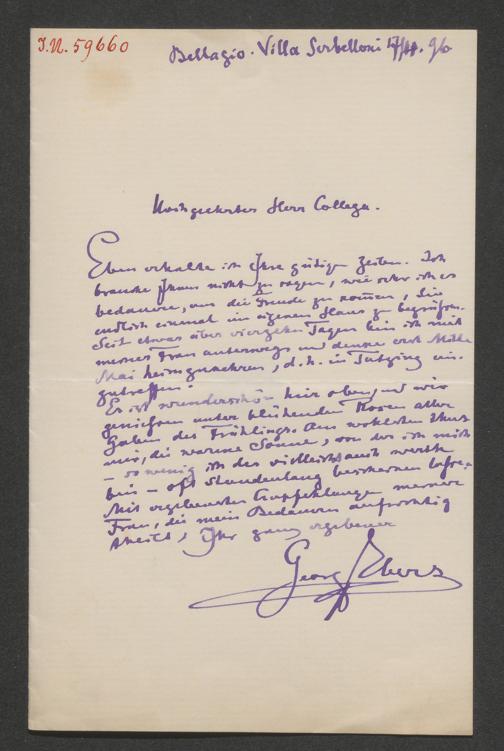 I.N. 59660
Bellagio. Villa Serbelloni 17/4. 96
Hochgeehrter Herr College.
Eben erhalte ich Ihre gütigen Zeilen. Ich
brauche Ihnen nicht zu sagen, wie sehr ich es
bedauere, um die Freude zu kommen, Sie
endlich einmal im eigenen Haus zu begrüßen.
Seit etwas über vierzehn Tagen bin ich mit
meiner Frau unterwegs und denke erst Mitte
Mai heimzukehren, d.h. in Tutzing ein-
zutreffen.
Es ist wunderschön hier oben, und wir
genießen unter blühenden Rosen alle
Gaben des Frühlings. Am wohlsten thut
mir die warme Sonne, von der ich mich
– so wenig ich des vielleicht auch werth
bin – oft Stundenlang bescheinen lasse.
Mit ergebensten Empfehlungen meiner
Frau, die mein Bedauern aufrichtig
theilt, Ihr ganz ergebener
Georg Ebers